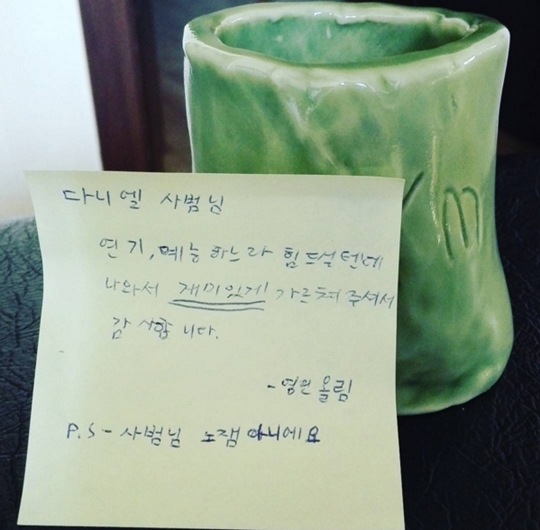 다니엘 사범님
연기, 예능 하느라 힘드실텐데
나와서 재미있게 가르쳐 주셔서
감사합니다.
-영민 올림
P.S - 사범님 노잼 아니에요
M